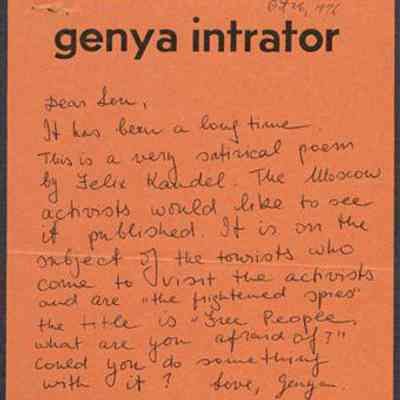 genya intrator
Dear Len,
It has been a long time.
This is a very satirical poem
by Felix Kandel. The Moscow
activists would like to see
it published. It is on the
subject of the tourists who
come to visit the activists
and are "the frightened spies"
the title is "Free People,
what are you afraid of?"
Could you do something
with it? Love, Genya.